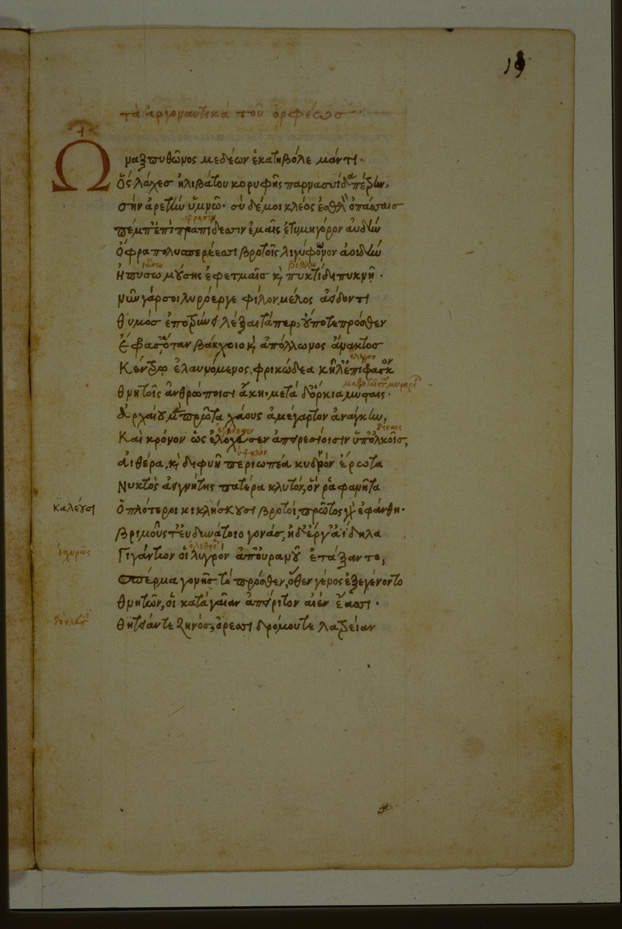 τὰ ἀργοναυτικὰ τοῦ ὀρφέως
Ὦ
ναξ πυθῶνος μεδέων ἑκατηβόλε μάντι·
Ὃς λάχες ἠλιβάτου κορυφῆς παρνασσίδα πέτρην.
σὴν ἀρετὴν ὑμνῶ· σὺ δέ μοι κλέος ἐσθλὸν ὀπάσσαις
φρεσὶν
πέμπ' ἐπὶ πραπίδεσσιν ἐμαῖς ἐτυμηγόρον αὐδήν
Ὄφρα πολυσπερέεσσι βροτοῖς λιγύφωνον ἀοιδήν
Ἠπύσω μούσης ἐφετμαῖς κ πυκτίδι πυκνῇ·
νῦν γάρ σοι λυροεργὲ φίλον μέλος ἀείδοντι
θυμὸς ἐποτρύνει λέξαι τά περ οὔποτε πρόσθεν
Ἔφρασ', ὅταν βάκχοιο κ ἀπόλλωνος ἄνακτος
Κέντρῳ ἐλαυνόμενος, φρικώδεα κῆλ' ἐπίφασκον
θνητοῖς ἀνθρώποισι ἄκη· μετὰ δ' ὄρκια μύσταις·
ἀρχαίου μὲν πρῶτα χάους ἀμέγαρτον ἀνάγκην,
Καὶ κρόνον ὡς ἐλόχευσεν ἀπειρεσίοισιν ὑφ' ὁλκοῖς,
ὑψηλὸν
αἰθέρα, κ διφυῆ περιωπέα κυδρὸν ἔρωτα
Νυκτὸς ἀειγνήτης πατέρα κλυτόν, ὅν ῥα φάνητα
καλέουσι
Ὁπλότεροι κικλήσκουσι βροτοί, πρῶτος γὰρ ἐφάνθη·
βριμοῦς τ' εὐδυνάτοιο γονάς, ἠδ' ἔργ' ἀΐδηλα
Γιγάντων οἳ λυγρὸν ἀπ' οὐρανοῦ ἐστάξαντο,
Σπέρμα γονῆς τὸ πρόσθεν, ὅθεν γένος ἐξεγένοντο
θνητῶν, οἳ κατὰ γαῖαν ἀπείριτον αἰὲν ἔασι·
θητείαν τε ζηνός, ὀρεσσιδρόμου τε λατρείαν